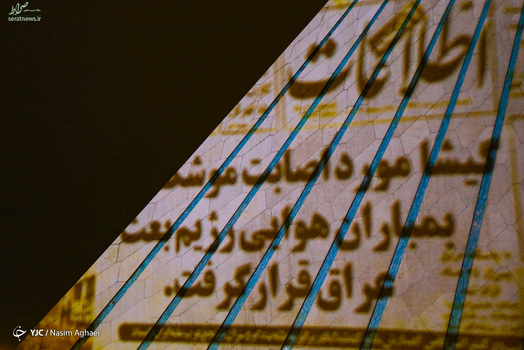 صراط
seratnews.ir
اطلاعات
گیشا مورد اصابت موشک
بمباران هوایی رژیم بعث
عراق قرار گرفت.
YJC / Nasim Aghaei